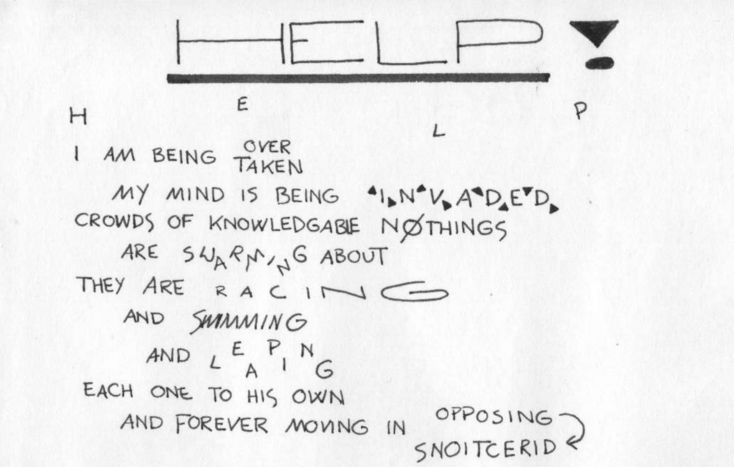 HELP!
H E L P
I AM BEING OVER TAKEN
MY MIND IS BEING INVADED
CROWDS OF KNOWLEDGABLE NØTHINGS
ARE SWARMING ABOUT
THEY ARE RACING
AND SWIMMING
AND LEAPING
EACH ONE TO HIS OWN
AND FOREVER MOVING IN OPPOSING
SNOITCERID